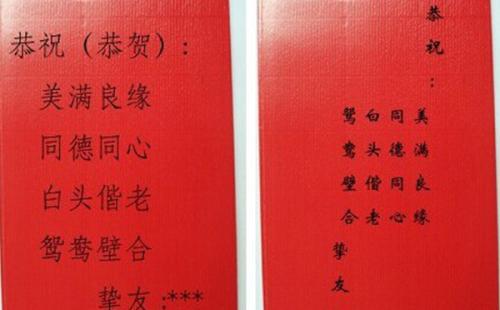 恭祝（恭贺）:
美满良缘
同德同心
白头偕老
鸳鸯璧合
挚友:***
恭祝:
美满良缘
同德同心
白头偕老
鸳鸯璧合
挚友